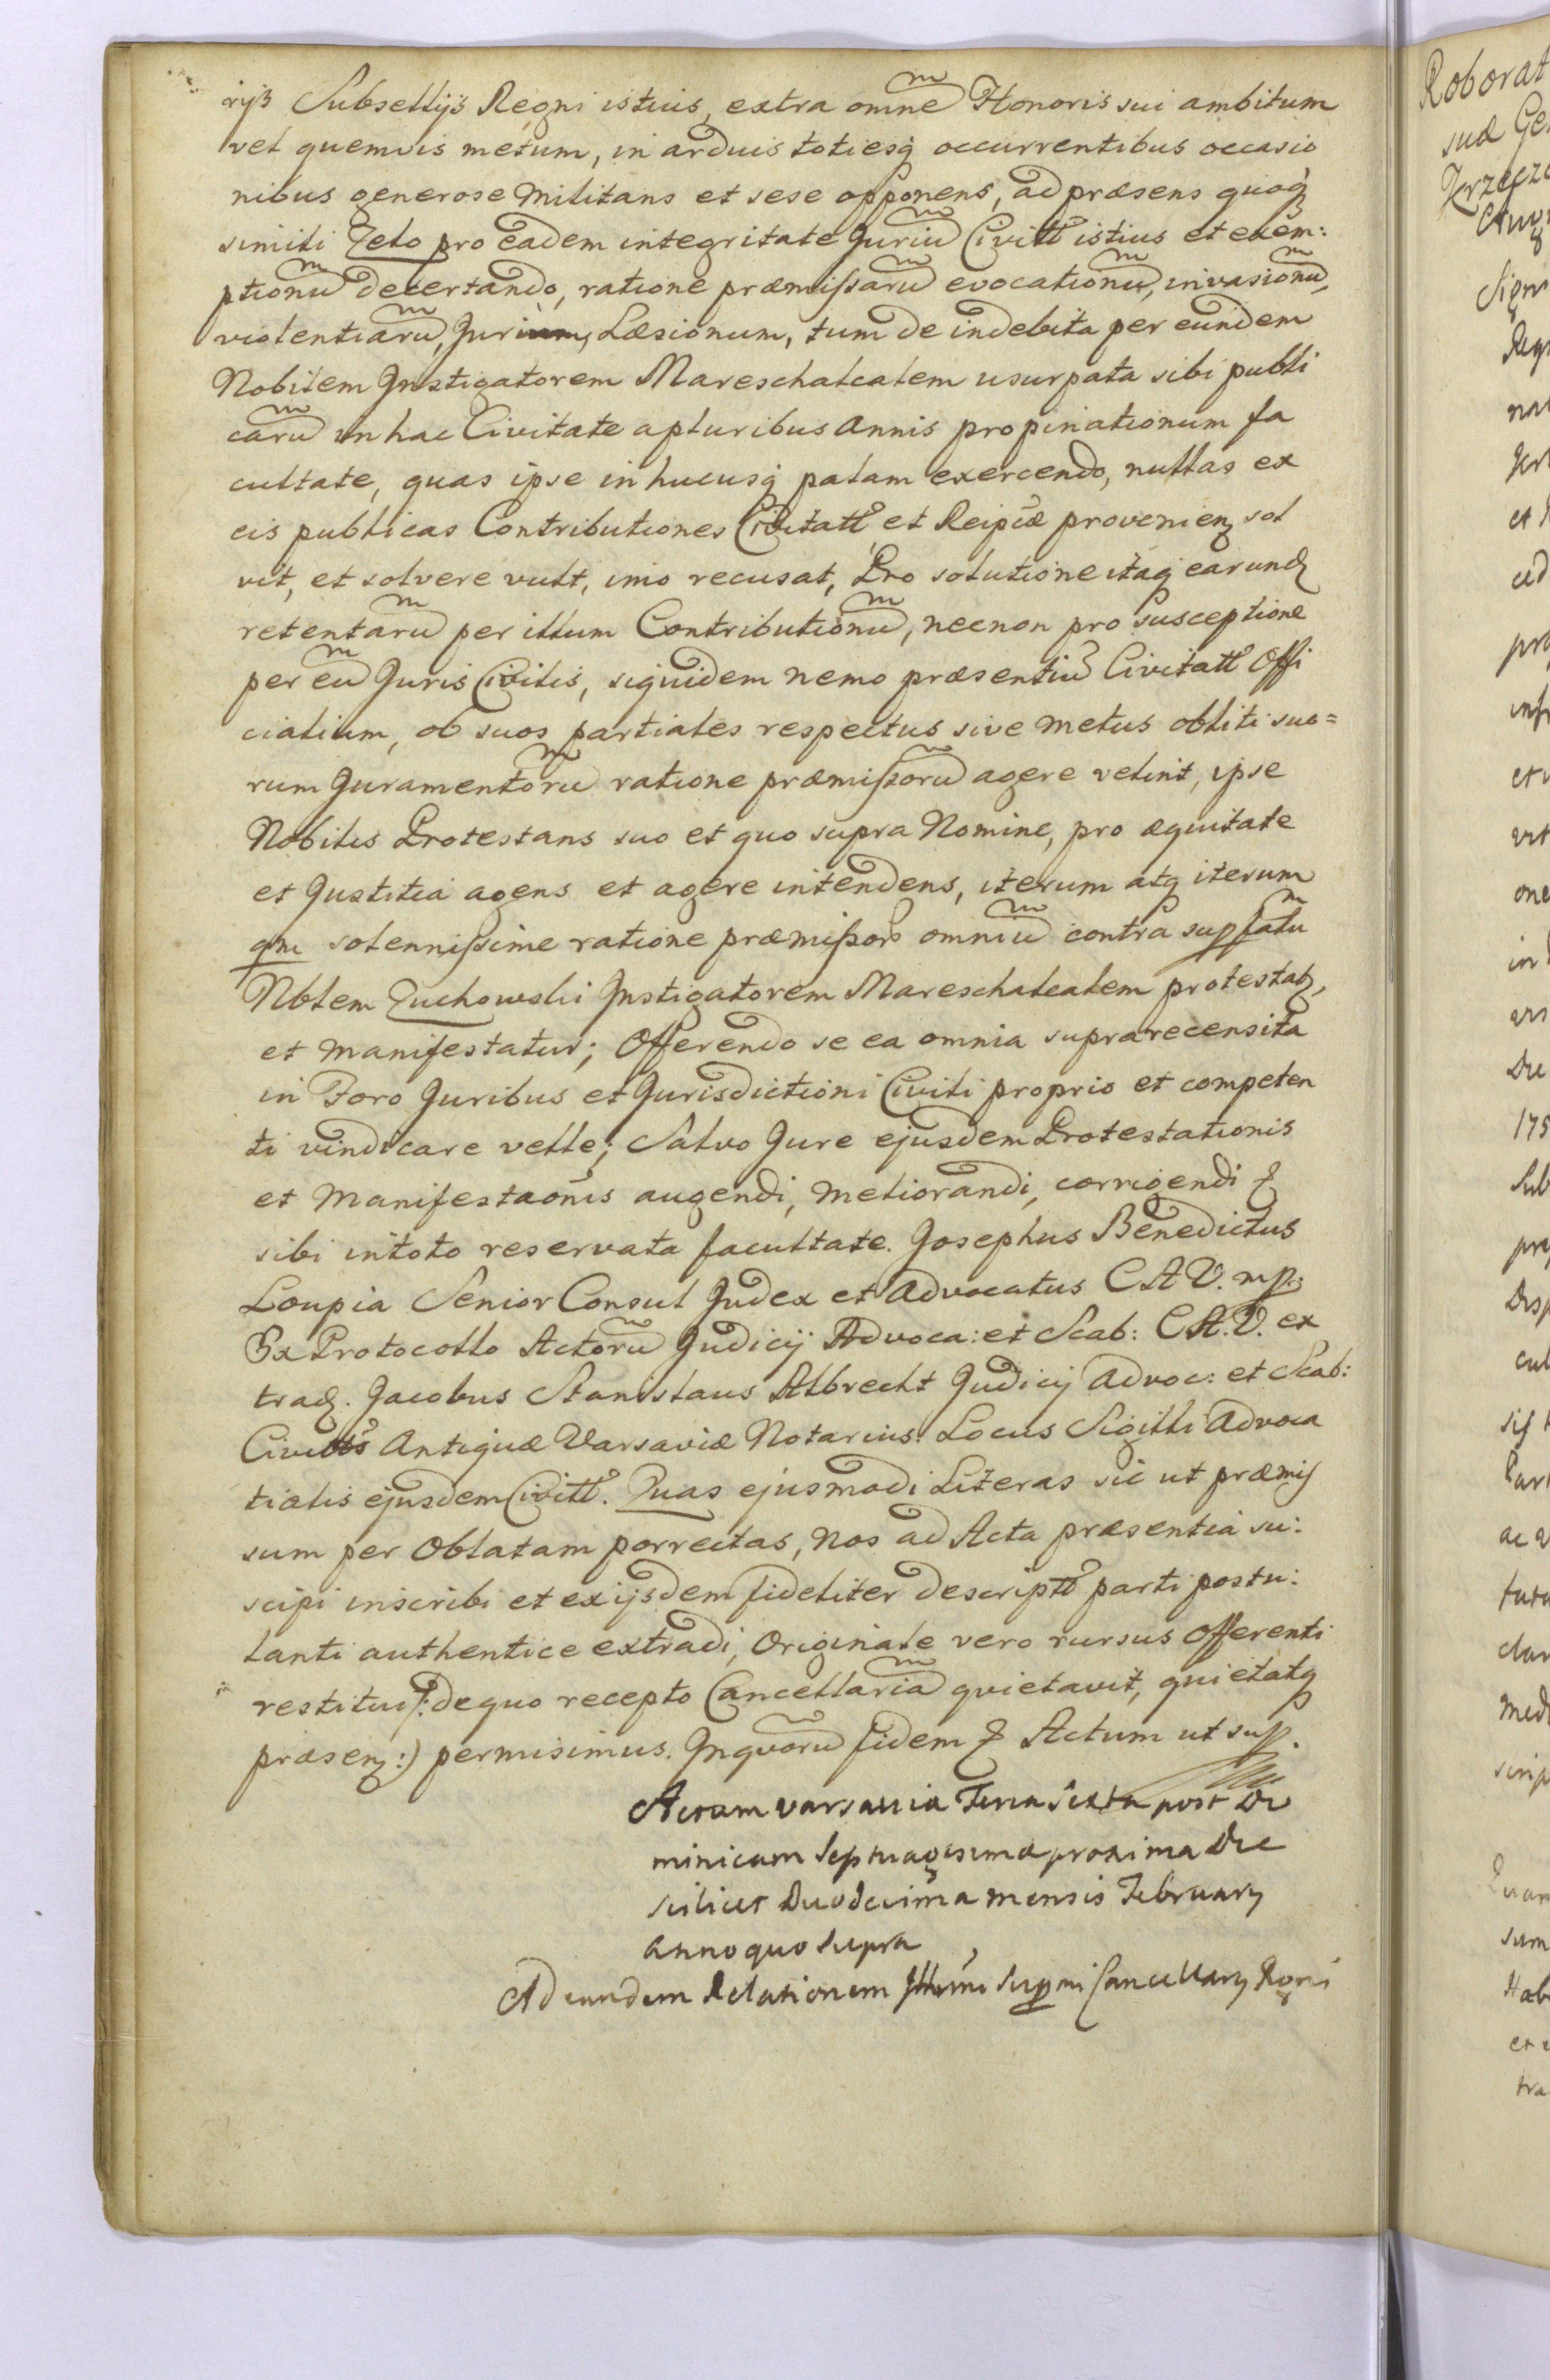 rijs Subsellijs Regni istius, extra omnem Honoris sui ambitum
vel quemvis metum, in arduis totiesq occurrentibus occasio
nibus generose Militans et sese opponens, ad præsens quoq
simili Zelo pro eadem integritate Jurium Civitt istius et exem:
ptionum decertando, ratione præmissarum evocationum, invasionum,
violentiarum, Jurium, Læsionum, tum de indebita per eundem
Nobilem Instigatorem Mareschalcalem usurpata sibi publi
carum in hac Civitate a pluribus Annis propinationum fa
cultate, quas ipse in hucusq palam exercendo, nullas ex
eis publicas Contributiones Civitatt et Reipcæ provenien sol
vit, et solvere vult, imo recusat, Pro solutione itaq earund
retentarum per illum Contributionum, necnon pro susceptione
per eum Juris Civilis, siquidem nemo præsentiu Civitatt Offi
cialium, ob suos partiales respectus sive metus obliti suo=
rum Juramentorum ratione præmissorum agere velint, ipse
Nobilis Protestans suo et quo supra Nomine, pro æquitate
et Justitia agens et agere intendens, iterum atq iterum
qm solennissime ratione præmissor omnium contra suppfatum
Nblem Zuchowski Instigatorem Mareschalcalem protestatq,
et manifestatur; Offerendo se ea omnia suprarecensita
in Foro Juribus et Jurisdictioni Civili proprio et competen
ti vindicare velle; Salvo Jure ejusdem Protestationis
et Manifestaonis augendi, meliorandi, corrigendi &
sibi in toto reservata facultate. Josephus Benedictus
Loupia Senior Consul Judex et Advocatus C A V. mp.
Ex Protocollo Actorum Judicij Advoca: et Scab: C A. V. ex
trad. Jacobus Stanislaus Albrecht Judicij Advoc: et Scab:
Civitts Antiquæ Varsaviæ Notarius. Locus Sigilli Advoca
tialis ejusdem Civitt. Quas ejusmodi Literas sic ut præmis
sum per Oblatam porrectas, nos ad Acta præsentia su:
scipi inscribi et ex ijsdem fideliter descriptt parti postu:
lanti authentice extradi, Originale vero rursus Offerenti
restitui /: de quo recepto Cancellariam quietavit, quietatq
præsen :) permisimus. In quorum fidem & Actum ut supp.
Actum varsavia Feria sexta post Do
minicam Septuagesima proxima Die
scilicet Duodecima mensis February
Anno quo supra
Ad eundem Relationem Illmi Suppmi Cancellary Regni
Roborat
suæ Ge